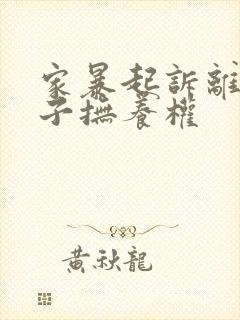 家暴起訴離
子撫養權
黃秋龍